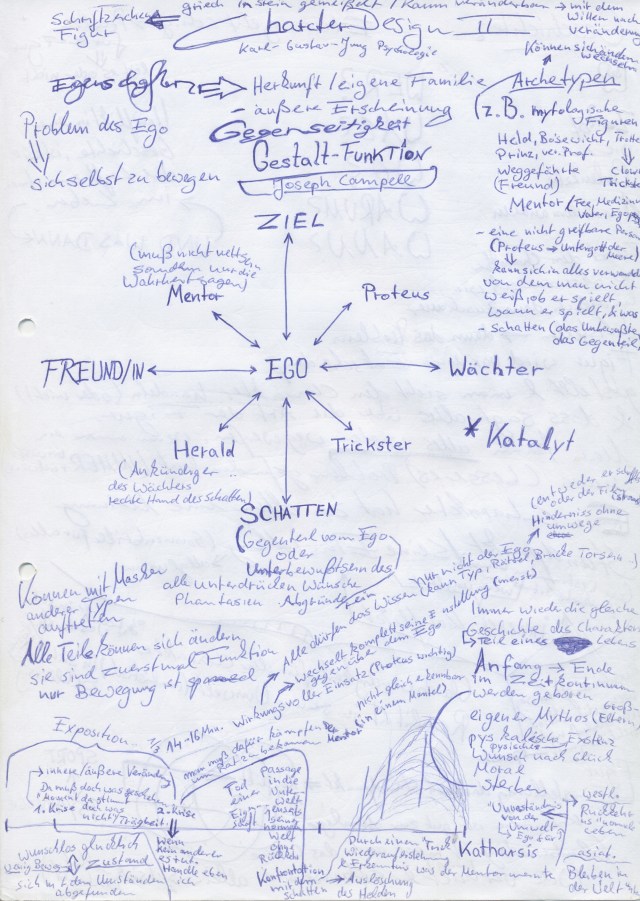 griech in stein gemeißelt / kaum veränderbar → mit dem
Schriftzeichen
Figur
Willen und
veränderung
Charter Design II
Karl-Gustav-Jung Psychologie
Können sich ändern
wechseln
Eigenschaften
Herkunft / eigene Familie
– äußere Erscheinung
Gegenseitigkeit
Gestalt-Funktion
Joseph Campell
Problem des Ego
sich selbst zu bewegen
Archetypen
z.B. mytologische
Figuren
Held, Bösewicht, Trottel
Prinz, ver. Prof.
weggefährte
(Freund)
Clown
Trickster
Mentor (Fee, Medizinm
Vater,
– eine nicht greifbare Person
(Proteus → Untergott der
Meere)
kann sich in alles verwandeln
von dem man nicht
weiß, ob er spielt,
wann er spielt, & was
– Schatten (das Unbewußte
das Gegenteil)
ZIEL
(muß nicht nett sein
sondern nur die
Wahrheit sagen)
Mentor
Proteus
FREUND/IN
EGO
Wächter
Herald
(Ankündiger
des Wächters
rechte Hand des Schatten)
Trickster
* Katalyt
SCHATTEN
(Gegenteil vom Ego
oder
Unterbewußtsein des
alle unterdrücken Wünsche
Phantasien Abgründe
(entweder er schafft
oder die
Hinderniss ohne
umwege
nur nicht der Ego
(kann Typ, Rätsel, Brücke Torsein)
Können mit Masken
anderer Typen
auftreten
Alle Teile können sich ändern
sie sind zuerst mal Funktion
nur Bewegung ist
Alle dürfen das Wissen
wechselt komplett seine Einstellung (meist)
gegenüber dem Ego
wirkungsvoller Einsatz (Proteus wichtig)
nicht gleich erkennbar
(in einem Mantel)
Immer wieder die gleiche
Geschichte des Charakters
→ Teil eines Lebens
Anfang → Ende
im Zeitkontinuum
werden geboren
eigener Mythos (Eltern,
Groß-
pysikalische Existenz
pysisches
Wunsch nach Glück
Moral
sterben
Exposition
14-16 Min.
man muß dafür kämpfen
um Rat zu bekommen
Mentor
→ innere/äußere Veränder
Da muß doch was geschehen
"Moment da stimmt
doch was
nicht"
1. Krise
Trägheit
2. Krise
Tod
einer
Eigen-
schaft
Passage
in die
Unter
welt
Konfrontation
mit dem
Schatten
→ Auslöschung
des Helden
Durch einen "Trick"
Wiederauferstehung
& Erkenntnis was der Mentor meinte
Katharsis
"Unverständnis
von der
Umwelt
westl.
Rückkehr
ins normale
Leben
asiat.
Bleiben in
der Welt
Wunschlos glücklich
wenig Beweg
Zustand
sich in & dem Umständen
abgefunden
wenn
kein anderer
es tut.
Handle eben
ich